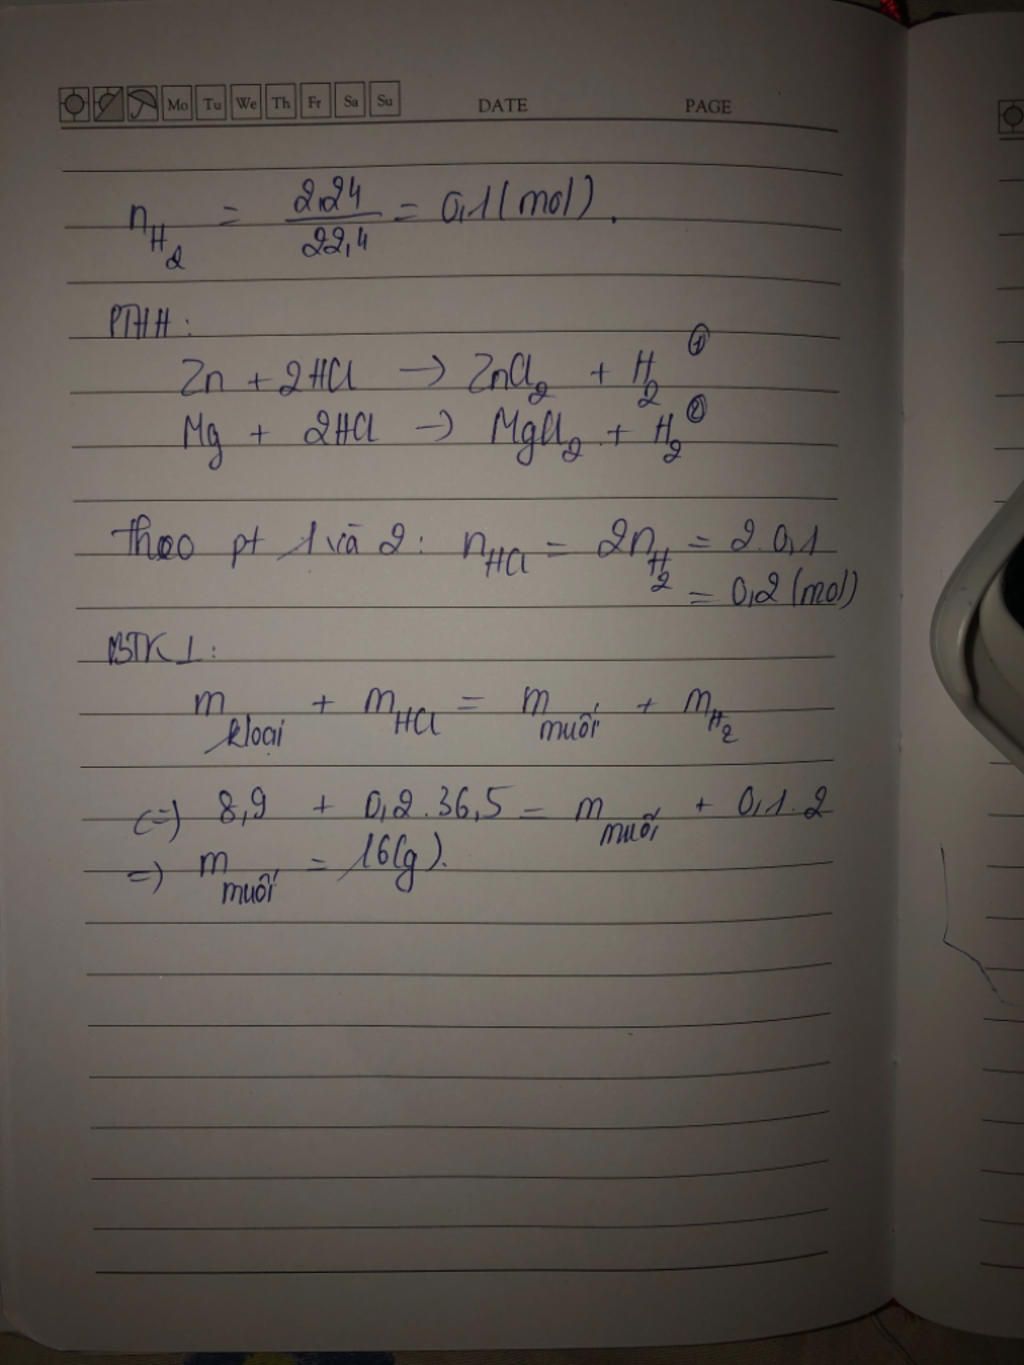 Mo Tu We Th Fr Sa Su DATE PAGE
n_H₂ = 2,24/22,4 = 0,1 (mol).
PTHH:
Zn + 2HCl → ZnCl₂ + H₂ ①
Mg + 2HCl → MgCl₂ + H₂ ②
Theo pt 1 và 2: n_HCl = 2n_H₂ = 2.0,1
= 0,2 (mol)
BTKL:
m_kloại + m_HCl = m_muối + m_H₂
(=) 8,9 + 0,2.36,5 = m_muối + 0,1.2
=) m_muối = 16(g).